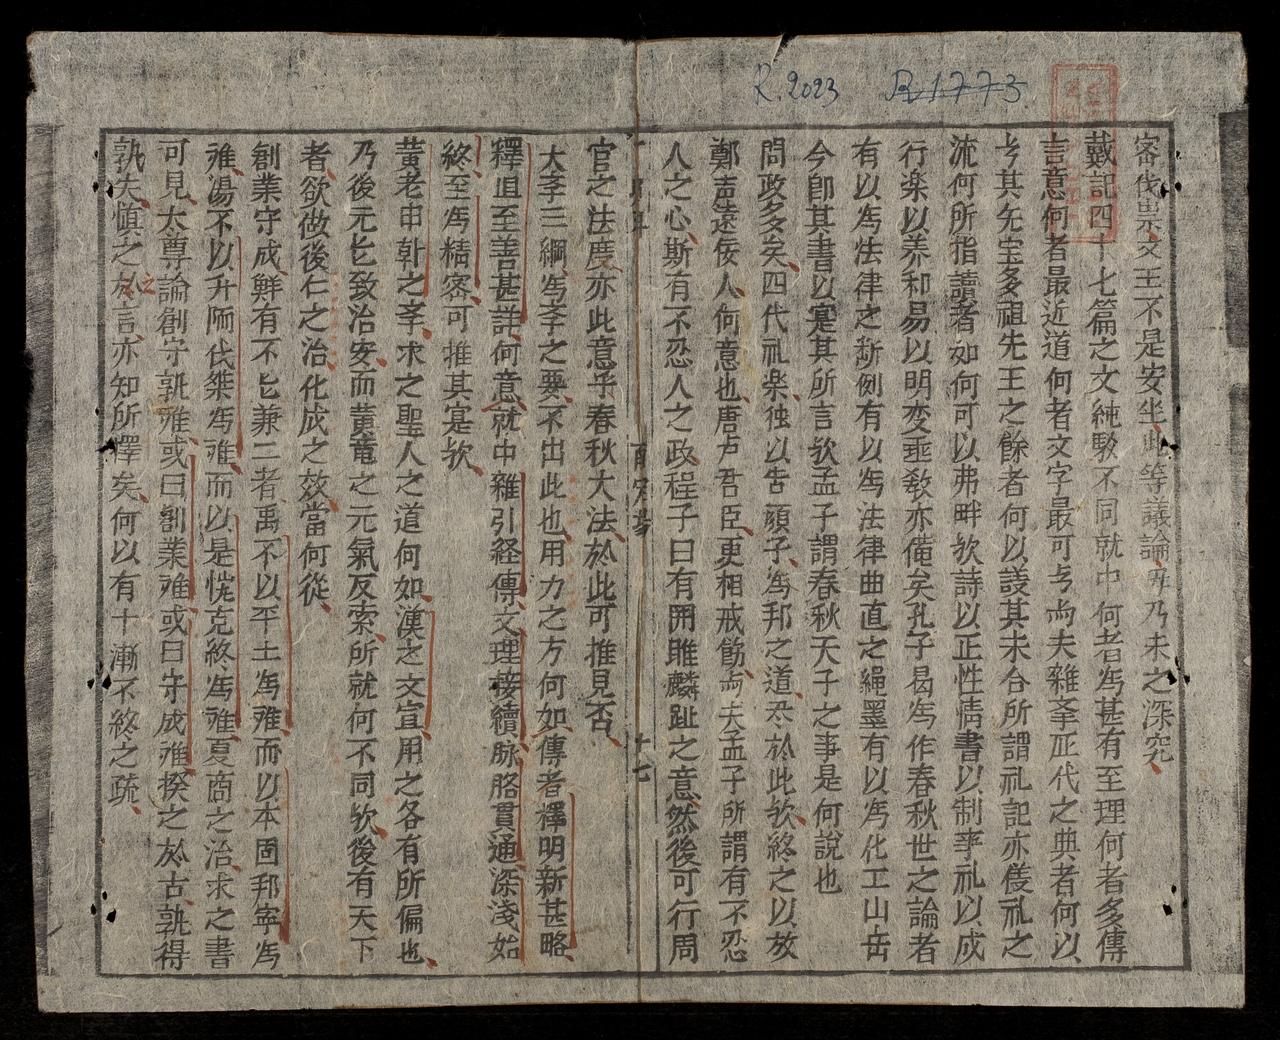 R.2023 R1773
密伐崇文王不是安坐此等議論毋乃未之深究
戴記四十七篇之文純駁不同就中何者爲甚有至理何者多傳
言意何者最近道何者文字最可考而夫雜筆正代之典者何以
考其先宝多祖先王之餘者何以議其未合所謂礼記亦僅礼之
流何所指讀者如何可以弗畔欤詩以正性情書以制事礼以成
行楽以养和易以明变垂教亦備矣孔子曷爲作春秋世之論者
有以爲法律之断例有以爲法律曲直之繩墨有以爲化工山岳
今卽其書以寔其所言欤孟子謂春秋天子之事是何說也
問政多矣四代礼楽独以告顔子爲邦之道尽於此欤終之以放
鄭声遠佞人何意也唐卢君臣更相戒飭而夫孟子所謂有不忍
人之心斯有不忍人之政程子曰有関雎麟趾之意然後可行周
官之法度亦此意乎春秋大法於此可推見否
大斈三綱爲斈之要不出此也用力之方何如傳者釋明新甚略
釋止至善甚詳何意就中雜引経傳文理接續脉胳貫通深淺始
終至爲精密可推其寔欤
黄老申韩之斈求之聖人之道何如漢之文宣用之各有所偏也
乃後元匕致治安而黄竜之元氣反索所就何不同欤後有天下
者欲做後仁之治化成之效當何從
創業守成鮮有不匕兼二者禹不以平土爲难而以本固邦寧爲
难湯不以升陑伐桀爲难而以是恍克終爲难夏商之治求之書
可見太尊論創守孰难或曰創業难或曰守成难揆之於古孰得
孰失慎之於言亦知所擇矣何以有十漸不終之疏
之
百家場
十七